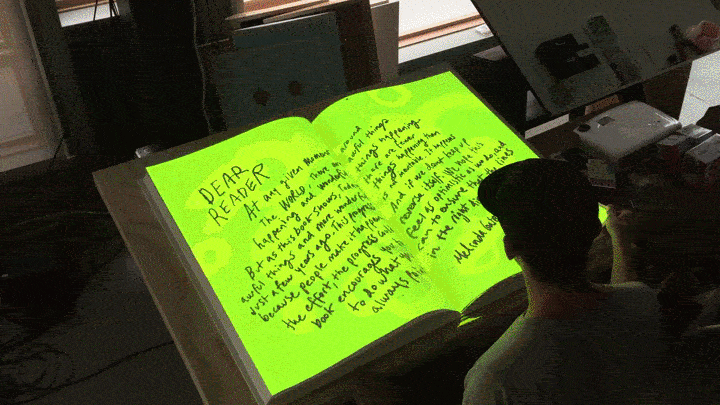 DEAR
READER
At any given moment around
The WORLD, There are awful things
happening and wonderful things happening.
But as this book shows, There are are fewer
awful things and more wonderful things happening than
just a few years ago. This progress is
because people make it happen. And if we don't keep up
the effort, the progress could reverse itself. We hope this
book encourages you to feel as optimistic as we do and
to do what you can to ensure that the lines
always in the right
Melinda